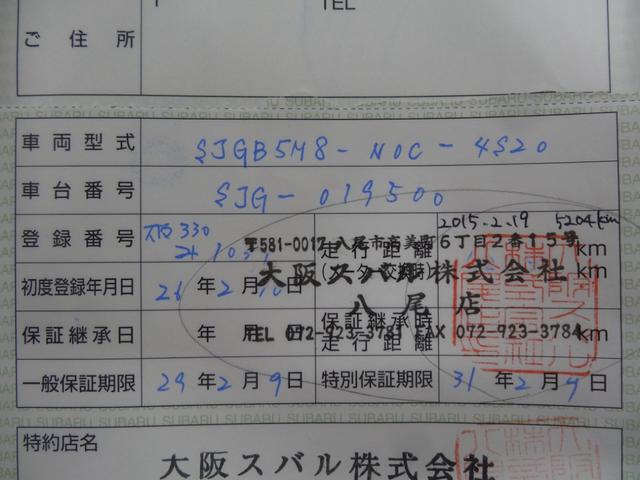 TEL
ご住所
SUBARU SUBARU SUBARU SUBARU SUBARU SUBARU
車両型式 SJGB5M8-NOC-4S20
車台番号 SJG-019500
2015-2.19 5204km
登録番号 大阪330 走行距離 km
〒581-0017 八尾市高美町6丁目2番15号
大阪スバル株式会社
初度登録年月日 26年2月10日 (メーター交換時) km
八尾店
保証継承日 年 月 日 保証継承時走行距離 km
TEL 072-923-3781 FAX 072-923-3784
一般保証期限 29年2月9日 特別保証期限 31年2月9日
SUBARU SUBARU SUBARU SUBARU SUBARU SUBARU
特約店名
大阪スバル株式会社